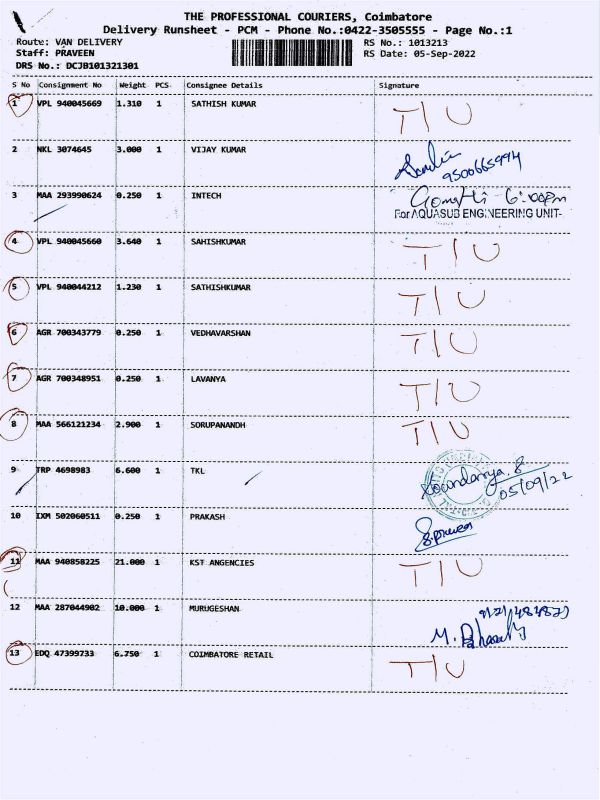 THE PROFESSIONAL COURIERS, Coimbatore
Delivery Runsheet - PCM - Phone No.:0422-3505555 - Page No.:1
Route: VAN DELIVERY RS No.: 1013213
Staff: PRAVEEN RS Date: 05-Sep-2022
DRS No.: DCJB101321301
S No Consignment No Weight PCS Consignee Details Signature
1 VPL 940045669 1.310 1 SATHISH KUMAR T/U
2 NKL 3074645 3.000 1 VIJAY KUMAR
9500665994
3 MAA 293990624 0.250 1 INTECH Gomathi - 6:00pm
For AQUASUB ENGINEERING UNIT-
4 VPL 940045660 3.640 1 SAHISHKUMAR T/U
5 VPL 940044212 1.230 1 SATHISHKUMAR T/U
6 AGR 700343779 0.250 1 VEDHAVARSHAN T/U
7 AGR 700348951 0.250 1 LAVANYA T/U
8 MAA 566121234 2.900 1 SORUPANANDH T/U
9 TRP 4698983 6.600 1 TKL Soundarya. S
05/09/22
10 IXM 502060511 0.250 1 PRAKASH
11 MAA 940858225 21.000 1 KST ANGENCIES T/U
12 MAA 287044902 10.000 1 MURUGESHAN
13 EDQ 47399733 6.750 1 COIMBATORE RETAIL T/U